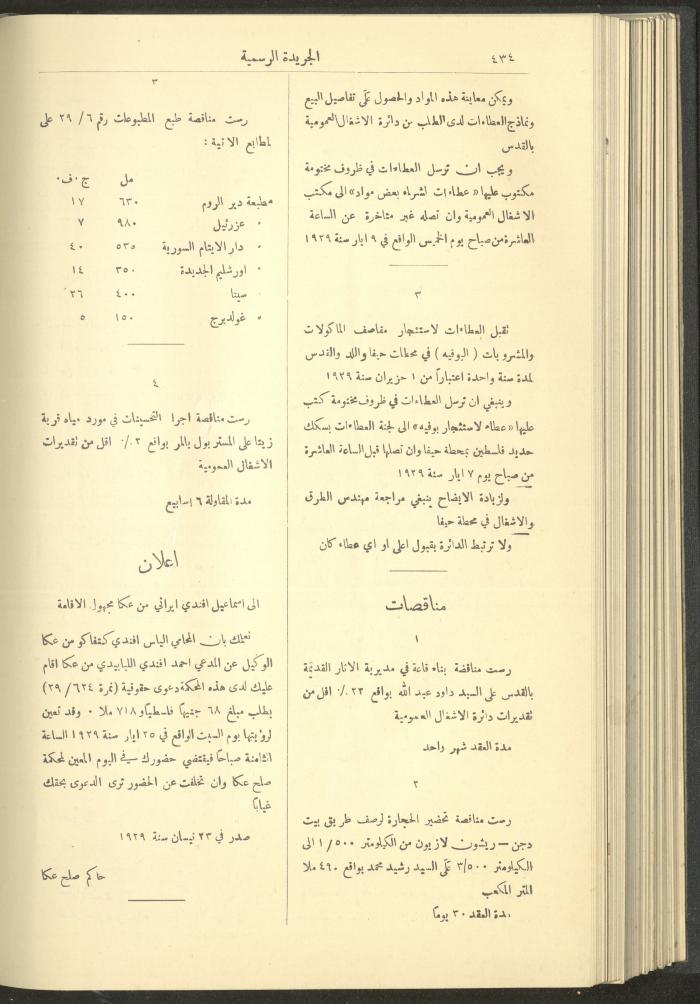 ٤٣٤
الجريدة الرسمية
ويمكن معاينة هذه المواد والحصول على تفاصيل البيع
ونماذج العطاءات لدى الطلب من دائرة الاشغال العمومية
بالقدس
ويجب ان ترسل العطاءات في ظروف مختومة
مكتوب عليها «عطاءات لشراء بعض مواد» الى مكتب
الاشغال العمومية وان تصله غير متاخرة عن الساعة
العاشرة من صباح يوم الخميس الواقع في ٩ ايار سنة ١٩٢٩
٣
تقبل العطاءات لاستئجار مقاصف الماكولات
والمشروبات ( البوفيه ) في محطات حيفا واللد والقدس
لمدة سنة واحدة اعتباراً من ١ حزيران سنة ١٩٢٩
وينبغي ان ترسل العطاءات في ظروف مختومة كتب
عليها «عطاء لاستئجار بوفيه» الى لجنة العطاءات بسكك
حديد فلسطين بمحطة حيفا وان تصلها قبل الساعة العاشرة
من صباح يوم ٧ ايار سنة ١٩٢٩
ولزيادة الايضاح ينبغي مراجعة مهندس الطرق
والاشغال في محطة حيفا
ولا ترتبط الدائرة بقبول اعلى او اي عطاء كان
مناقصات
١
رست مناقصة بناء قاعة في مديرية الاثار القديمة
بالقدس على السيد داود عبد الله بواقع ٢٣ ٪ اقل من
تقديرات دائرة الاشغال العمومية
مدة العقد شهر واحد
٢
رست مناقصة تحضير الحجارة لرصف طريق بيت
دجن – ريشون لازيون من الكيلومتر ١/٥٠٠ الى
الكيلومتر ٣/٥٠٠ على السيد رشيد محمد بواقع ٤٩٠ ملا
المتر المكعب
مدة العقد ٣٠ يوما
٣
رست مناقصة طبع المطبوعات رقم ٦/ ٢٩ على
المطابع الاتية :
مل ج٠ف٠
مطبعة دير الروم ٦٣٠ ١٧
" عزرئيل ٩٨٠ ٧
" دار الايتام السورية ٥٣٥ ٤٠
" اورشليم الجديدة ٣٥٠ ١٤
" سينا ٤٠٠ ٢٦
" غولدبرج ١٥٠ ٥
٤
رست مناقصة اجرا التحسينات في مورد مياه قرية
زيتا على المستر بول بالمر بواقع ٣ ٪ اقل من تقديرات
الاشغال العمومية
مدة المقاولة ٦ اسابيع
اعلان
الى اسماعيل افندي ايراني من عكا مجهول الاقامة
نعلمك بان المحامي الياس افندي كتفاكو من عكا
الوكيل عن المدعي احمد افندي اللبابيدي من عكا اقام
عليك لدى هذه المحكمة دعوى حقوقية (نمرة ٦٢٤/ ٢٩)
بطلب مبلغ ٦٨ جنيهاً فلسطينياً و ٧١٨ ملا ٠ وقد تعين
لرؤيتها يوم السبت الواقع في ٢٥ ايار سنة ١٩٢٩ الساعة
الثامنة صباحاً فيقتضي حضورك في اليوم المعين لمحكمة
صلح عكا وان تخلفت عن الحضور ترى الدعوى بحقك
غياباً
صدر في ٢٣ نيسان سنة ١٩٢٩
حاكم صلح عكا